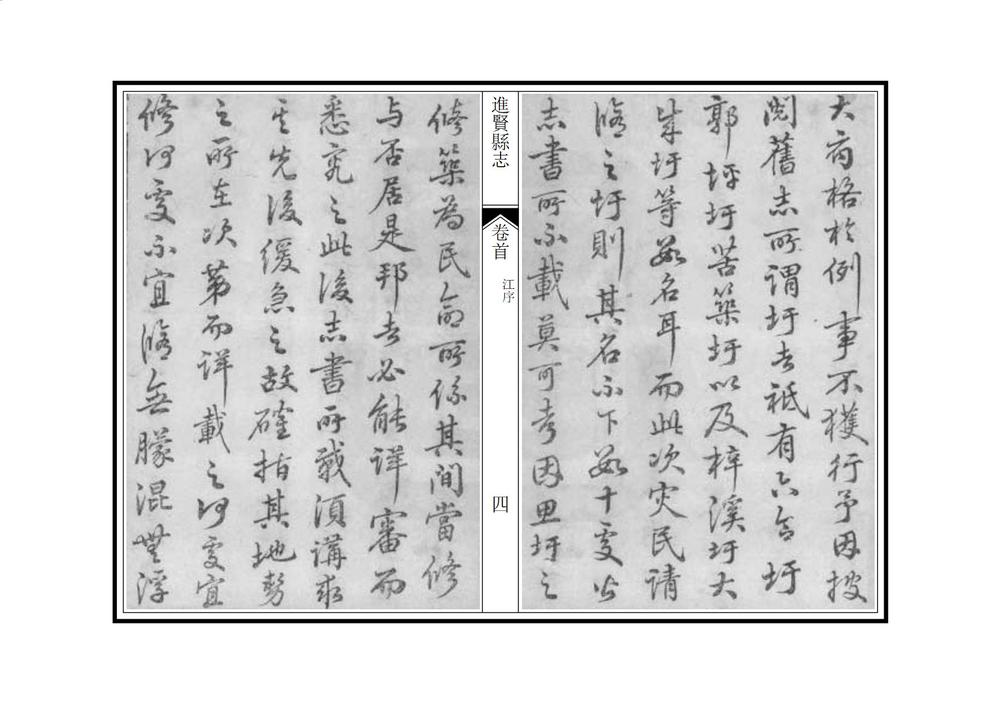 大府格於例事不獲行予因披
閱舊志所謂圩者祗有六合圩
郭坪圩苦築圩以及梓溪圩大
圩等數名耳而此次灾民請
脩之圩則其名不下數十處皆
志書所不載莫可考因思圩之
進賢縣志
卷首
江序
四
修築為民命所係其間當修
与否居是邦者必能詳審而
悉究之此後志書所載須講求
其先後緩急之故確指其地勢
之所在次第而詳載之何處宜
修何處不宜脩無朦混無浮